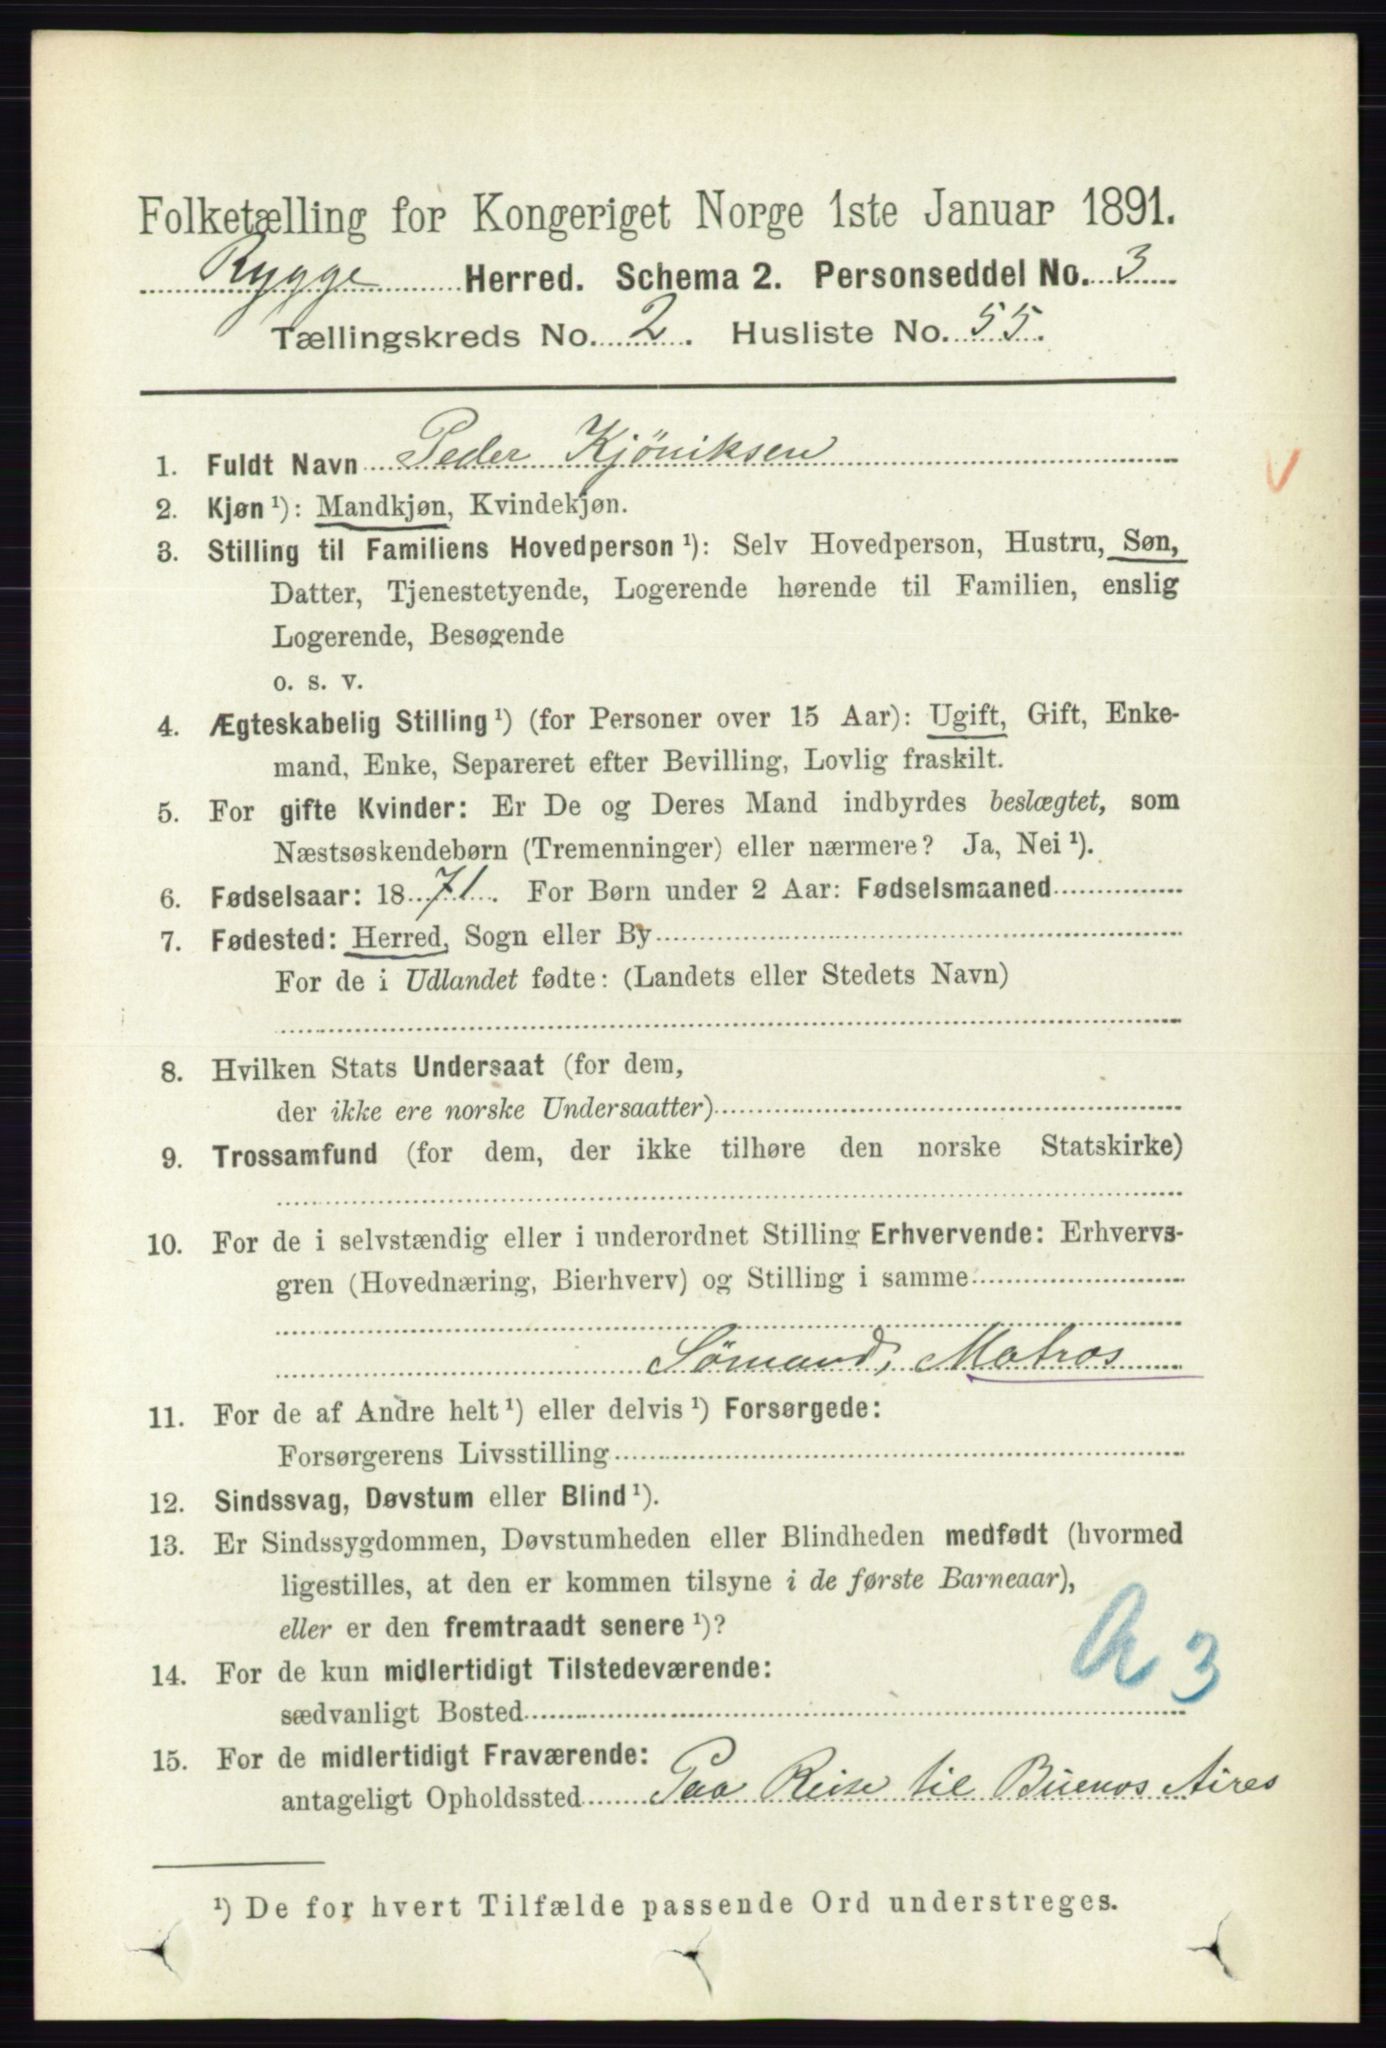 Folketælling for Kongeriget Norge 1ste Januar 1891.
Rygge Herred. Schema 2. Personseddel No. 3
Tællingskreds No. 2. Husliste No. 55.
1. Fuldt Navn Peder Kjöniksen
2. Kjøn ¹): Mandkjøn, Kvindekjøn.
3. Stilling til Familiens Hovedperson ¹): Selv Hovedperson, Hustru, Søn,
Datter, Tjenestetyende, Logerende hørende til Familien, enslig
Logerende, Besøgende
o. s. v.
4. Ægteskabelig Stilling ¹) (for Personer over 15 Aar): Ugift, Gift, Enke-
mand, Enke, Separeret efter Bevilling, Lovlig fraskilt.
5. For gifte Kvinder: Er De og Deres Mand indbyrdes beslægtet, som
Næstsøskendebørn (Tremenninger) eller nærmere? Ja, Nei ¹).
6. Fødselsaar: 1871. For Børn under 2 Aar: Fødselsmaaned
7. Fødested: Herred, Sogn eller By
For de i Udlandet fødte: (Landets eller Stedets Navn)
8. Hvilken Stats Undersaat (for dem,
der ikke ere norske Undersaatter)
9. Trossamfund (for dem, der ikke tilhøre den norske Statskirke)
10. For de i selvstændig eller i underordnet Stilling Erhvervende: Erhvervs-
gren (Hovednæring, Bierhverv) og Stilling i samme
Sömand, Matros
11. For de af Andre helt ¹) eller delvis ¹) Forsørgede:
Forsørgerens Livsstilling
12. Sindssvag, Døvstum eller Blind ¹).
13. Er Sindssygdommen, Døvstumheden eller Blindheden medfødt (hvormed
ligestilles, at den er kommen tilsyne i de første Barneaar),
eller er den fremtraadt senere ¹)?
14. For de kun midlertidigt Tilstedeværende:
sædvanligt Bosted
15. For de midlertidigt Fraværende:
antageligt Opholdssted Paa Reise til Buenos Aires
¹) De for hvert Tilfælde passende Ord understreges.